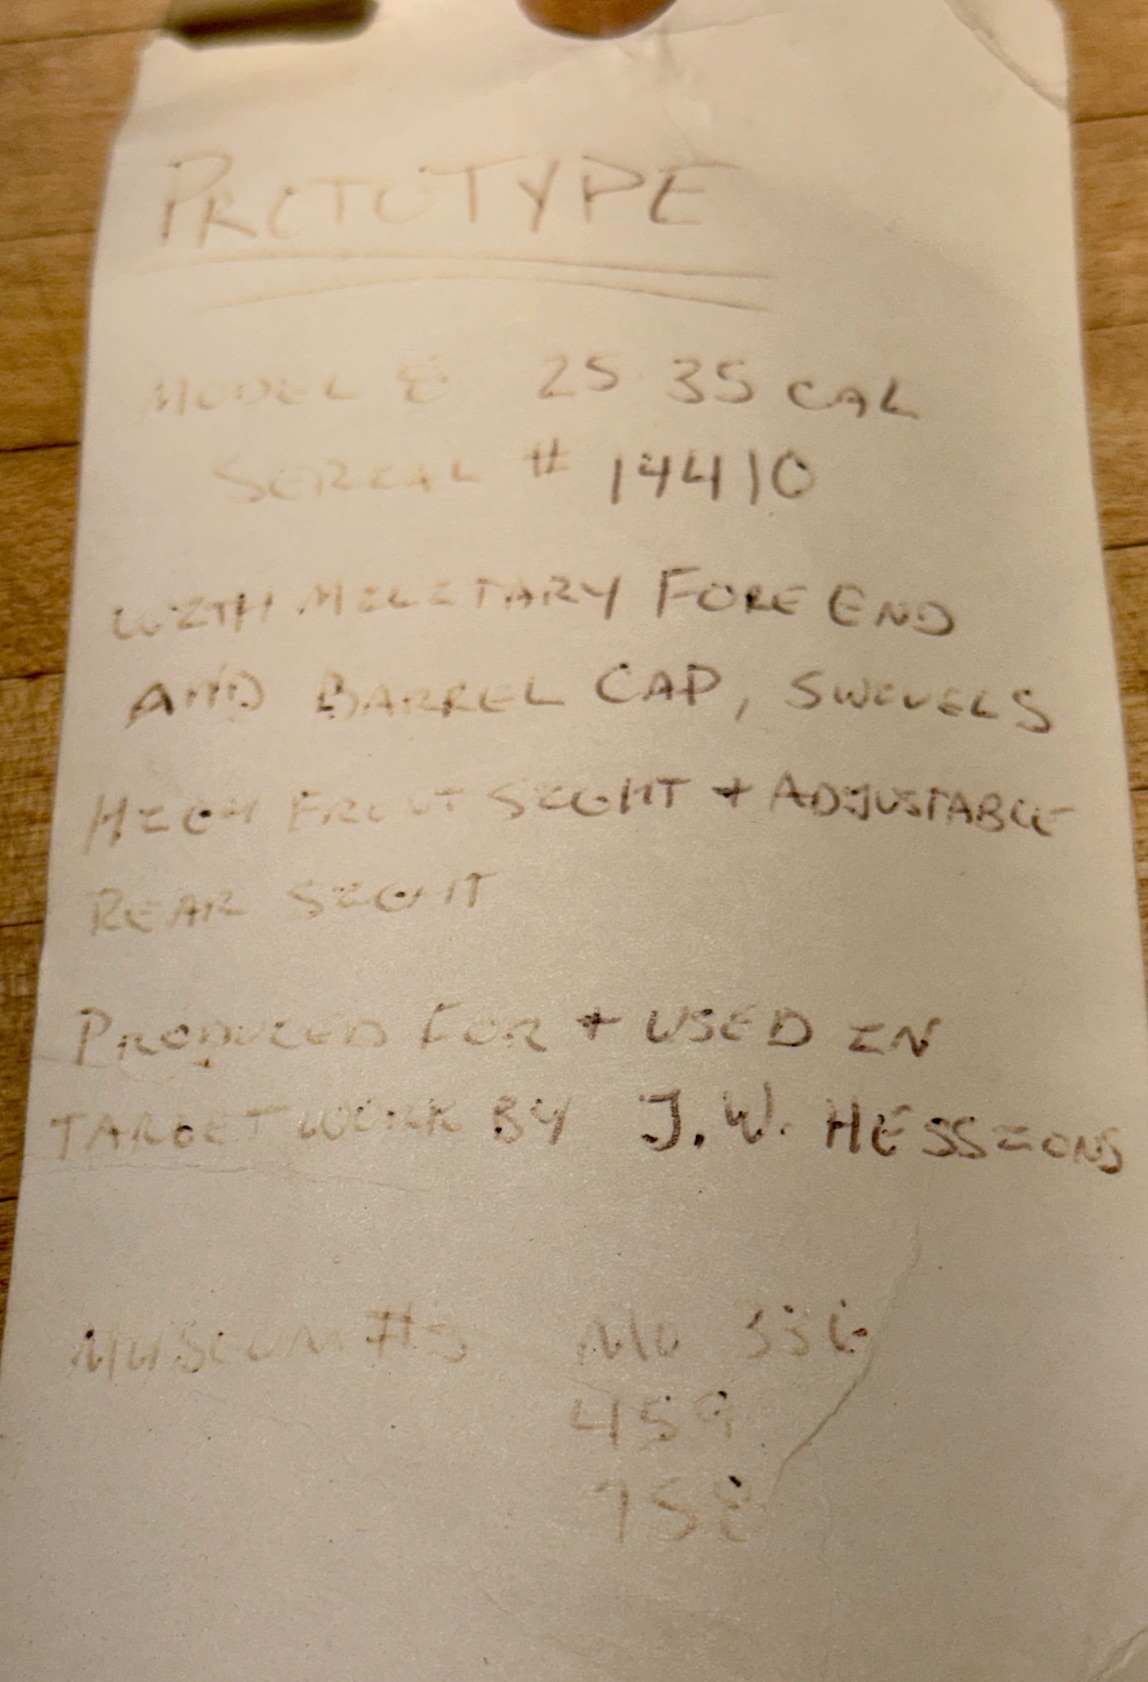 PROTOTYPE
MODEL 8 25 35 CAL
SERIAL # 14410
WITH MILITARY FORE END
AND BARREL CAP, SWIVELS
HIGH FRONT SIGHT + ADJUSTABLE
REAR SIGHT
PRODUCED FOR + USED IN
TARGET WORK BY J. W. HESSIONS
MUSEUM #S 336
459
758